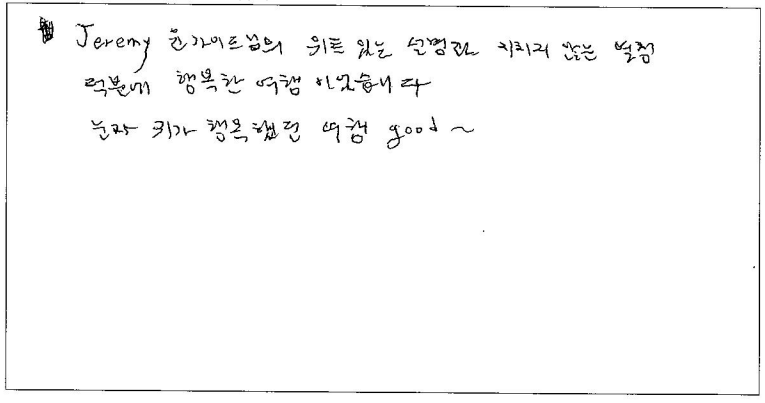 Jeremy 윤가이드님의 위트 있는 설명과 지치지 않는 열정
덕분에 행복한 여행 이었습니다
눈과 귀가 행복했던 여행 good ~